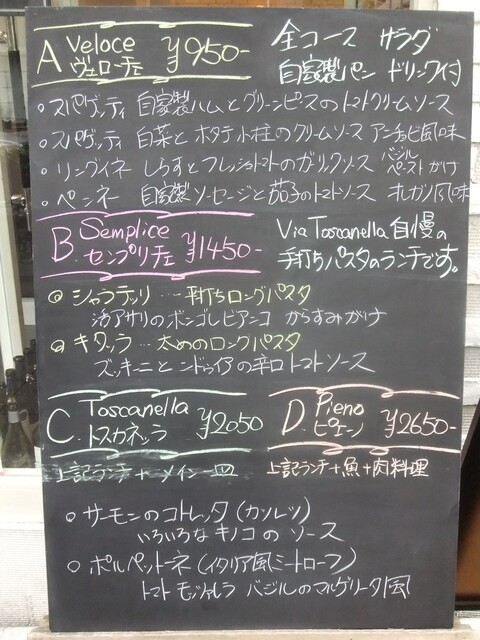 A Veloce ヴェローチェ ¥950-
全コース サラダ
自家製パン ドリンク付
○スパゲッティ 自家製ハムとグリーンピースのトマトクリームソース
○スパゲッティ 白菜とホタテ小柱のクリームソース アンチョビ風味
○リングイネ しらすとフレッシュトマトのガーリックソース バジルペーストがけ
○ペンネ 自家製ソーセージと茄子のトマトソース オレガノ風味
B. Semplice センプリチェ ¥1450-
Via Toscanella 自慢の
手打ちパスタのランチです。
◎シャラテッリ…平打ちロングパスタ
活アサリのボンゴレビアンコ からすみがけ
◎キタッラ…太めのロングパスタ
ズッキーニとンドゥイアの辛口トマトソース
C. Toscanella トスカネッラ ¥2050
上記ランチ+メイン一皿
D. Pieno ピエーノ ¥2650-
上記ランチ+魚+肉料理
○サーモンのコトレッタ(カツレツ)
いろいろなキノコのソース
○ポルペットーネ(イタリア風ミートローフ)
トマト モッツァレラ バジルのマルゲリータ風